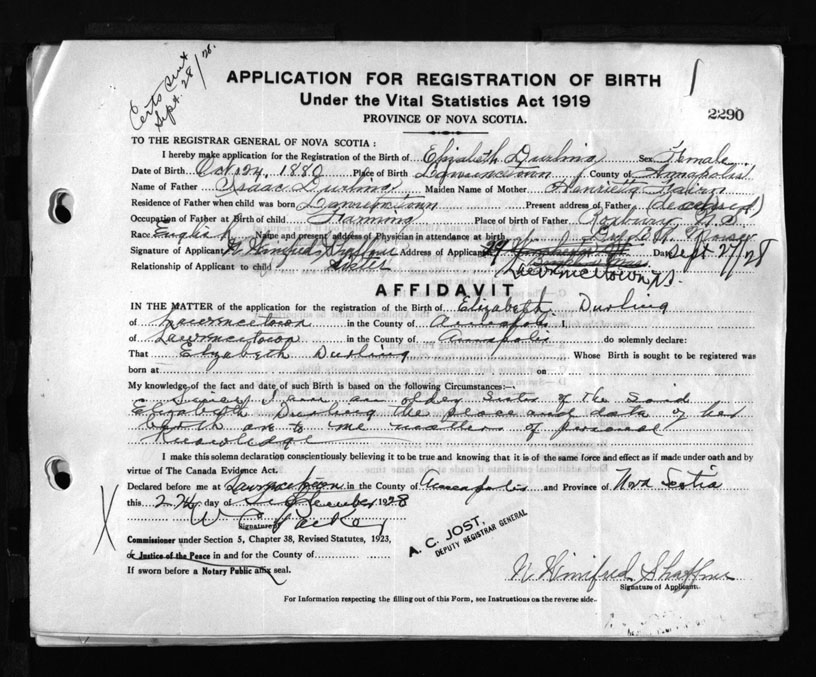 Certs sent
Sept. 28/28.
APPLICATION FOR REGISTRATION OF BIRTH
Under the Vital Statistics Act 1919
PROVINCE OF NOVA SCOTIA.
2290
TO THE REGISTRAR GENERAL OF NOVA SCOTIA :
I hereby make application for the Registration of the Birth of Elizabeth Durling Sex Female
Date of Birth Oct. 24, 1880 Place of Birth Lawrencetown County of Annapolis
Name of Father Isaac Durling Maiden Name of Mother Henrietta
Residence of Father when child was born Lawrencetown Present address of Father (deceased)
Occupation of Father at Birth of child Farming Place of birth of Father Roxbury N.S.
Race English Name and present address of Physician in attendance at birth
Signature of Applicant N Winifred Shaffner Address of Applicant 29 Date Sept 27/28
Relationship of Applicant to child Sister Lawrencetown, N.S.
AFFIDAVIT
IN THE MATTER of the application for the registration of the Birth of Elizabeth Durling
of Lawrencetown in the County of Annapolis I,
of Lawrencetown in the County of Annapolis do solemnly declare:
That Elizabeth Durling Whose Birth is sought to be registered was
born at on
My knowledge of the fact and date of such Birth is based on the following Circumstances:—
Since I am an older sister of the said
Elizabeth Durling the place and date of her
birth are to me matters of personal
knowledge
I make this solemn declaration conscientiously believing it to be true and knowing that it is of the same force and effect as if made under oath and by
virtue of The Canada Evidence Act.
Declared before me at Lawrencetown in the County of Annapolis and Province of Nova Scotia
this 27th day of September 1928
Signature
Commissioner under Section 5, Chapter 38, Revised Statutes, 1923,
or Justice of the Peace in and for the County of
If sworn before a Notary Public affix seal.
A. C. JOST,
DEPUTY REGISTRAR GENERAL
N Winifred Shaffner
Signature of Applicant.
For Information respecting the filling out of this Form, see Instructions on the reverse side.